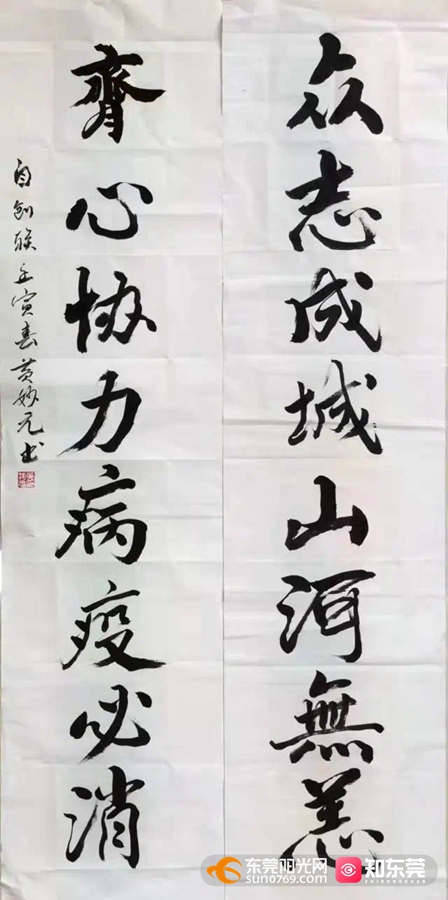 众志成城山河無恙
齊心协力病疫必消
自创联壬寅春黄妙元书
东莞阳光网
sun0769.com
知东莞
ZHIDONGGUAN